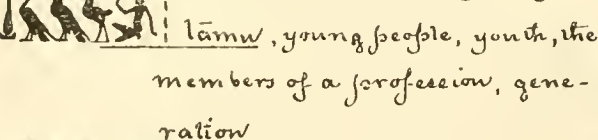 tāmu, young people, youth, the
members of a profession, gene-
ration